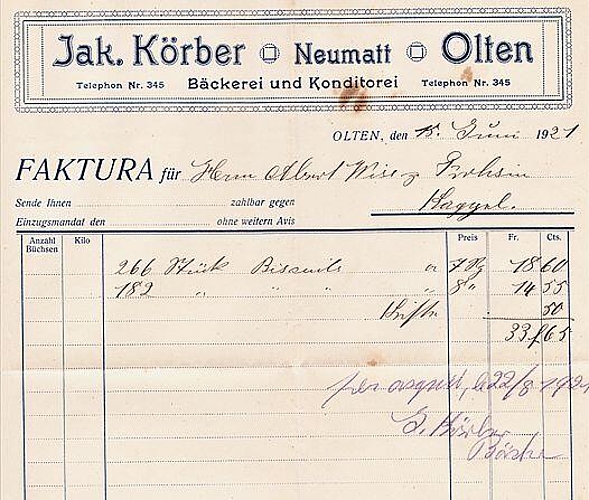 Jak. Körber Neumatt Olten
Telephon Nr. 345 Bäckerei und Konditorei Telephon Nr. 345
OLTEN, den 15. Juni 1921
FAKTURA für Herrn Albert
Sende Ihnen zahlbar gegen
Hägg
Einzugsmandat den ohne weitern Avis
Anzahl Büchsen Kilo Preis Fr. Cts.
266 Stück Biscuits a 7 Rp 18 60
182 " " " " 8 " 14 55
50
33 65
22/8 1921
Körber